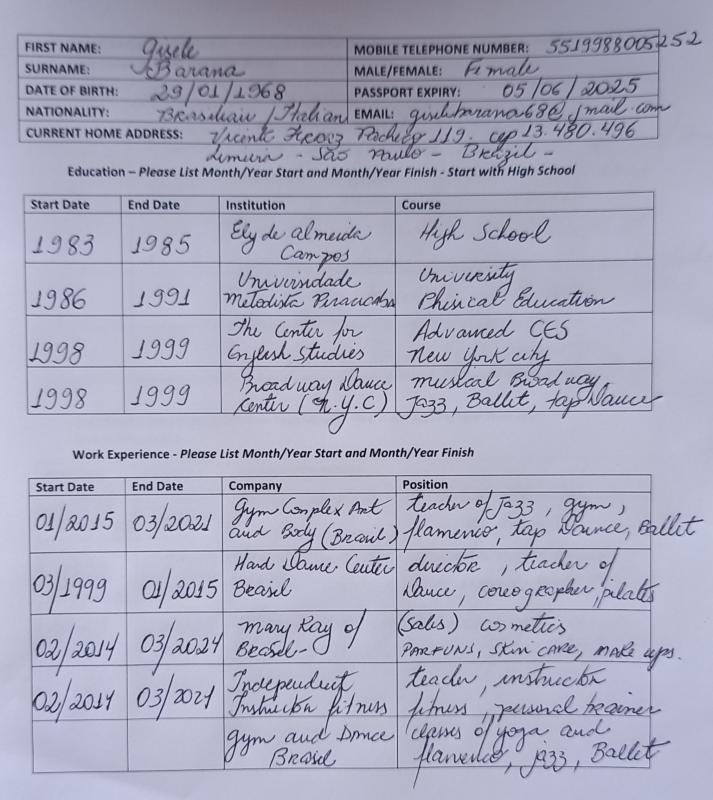 FIRST NAME: Gisele
MOBILE TELEPHONE NUMBER: 5519998005252
SURNAME: Barana
MALE/FEMALE: Female
DATE OF BIRTH: 29/01/1968
PASSPORT EXPIRY: 05/06/2025
NATIONALITY: /Italian
EMAIL:
CURRENT HOME ADDRESS: Vicente Pacheco 119. cep 13.480.496
Limeira - São Paulo - Brazil -
Education – Please List Month/Year Start and Month/Year Finish - Start with High School
Start Date End Date Institution Course
1983 1985 Ely de almeida Campos High School
1986 1991 Metodista University Education
1998 1999 The Center for English Studies Advanced CES New York city
1998 1999 Broadway Dance Center (N.Y.C) musical Broadway, Jazz, Ballet, tap Dance
Work Experience - Please List Month/Year Start and Month/Year Finish
Start Date End Date Company Position
01/2015 03/2021 Gym Complex Art and Body (Brasil) teacher of Jazz, gym, flamenco, tap Dance, Ballet
03/1999 01/2015 Dance Center Brasil director, teacher of Dance, coreographer, pilates
02/2014 03/2024 mary Kay of Brasil- (sales) cosmetics PARFUNS, SKIN CARE, MAKE ups.
02/2014 Instructor fitness teacher, instructor fitness, personal trainer
gym and Dance Brasil classes of yoga and flamenco, jazz, Ballet